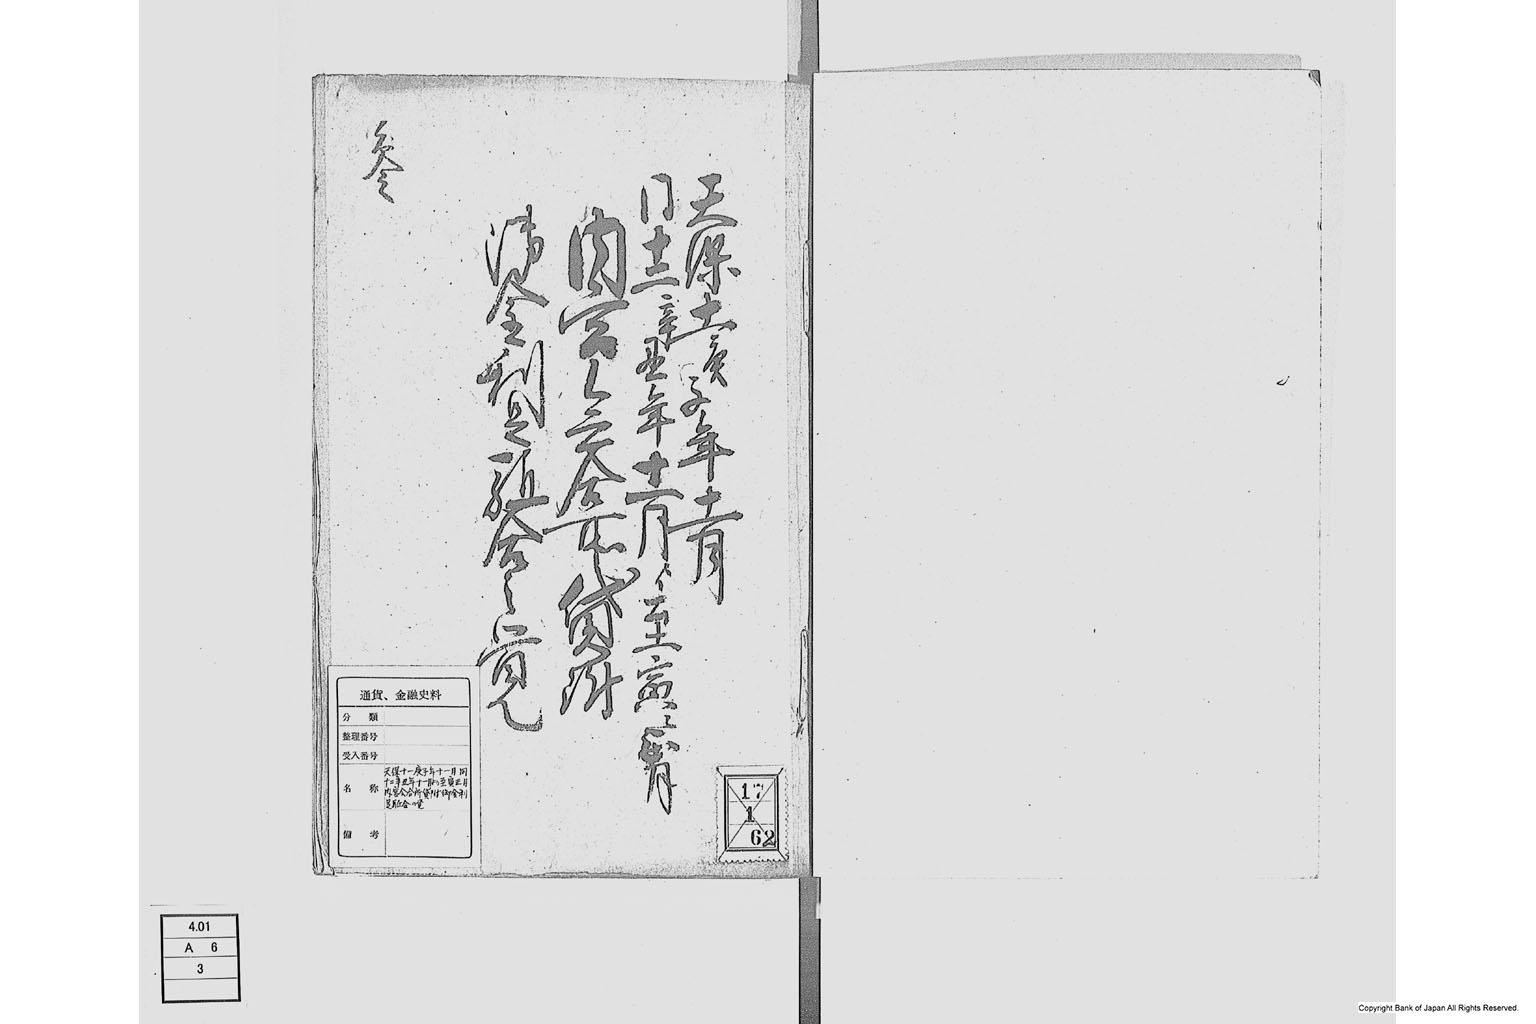 天保十一庚子年十一月
同十二辛丑年十一月ゟ至寅正月
内宮会合所貸附
御金利足取合之覚
叁
通貨、金融史料
分類
整理番号
受入番号
名称
天保十一庚子年十一月 同
十二辛丑年十一月ゟ至寅正月
内宮会合所貸附御金利
足取合の覚
備考
17
1
62
4.01
A 6
3
Copyright Bank of Japan All Rights Reserved.